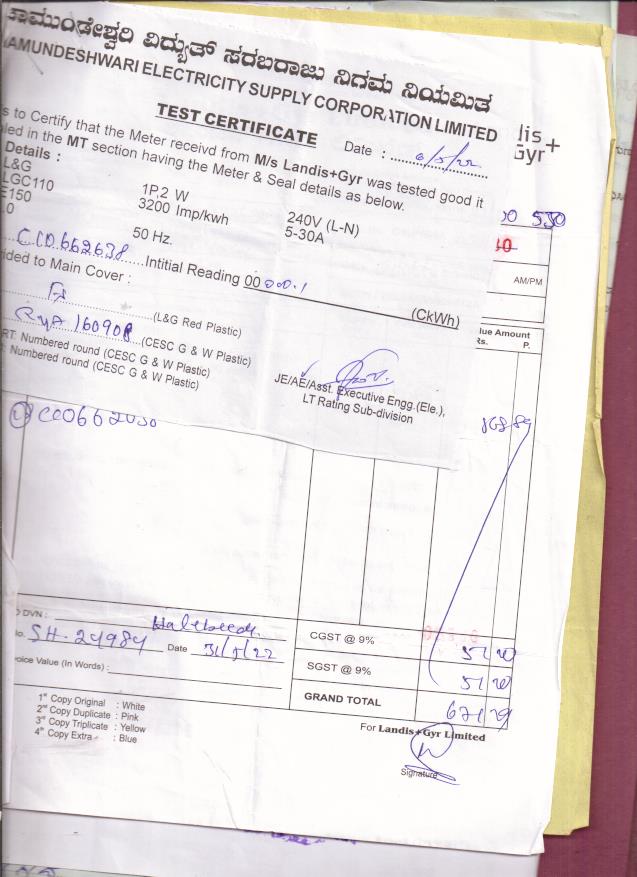 ಕಾಮುಂಡೇಶ್ವರಿ ವಿದ್ಯುತ್ ಸರಬರಾಜು ನಿಗಮ ನಿಯಮಿತ
AMUNDESHWARI ELECTRICITY SUPPLY CORPORATION LIMITED
TEST CERTIFICATE
Date : 6/5/22
s to Certify that the Meter receivd from M/s Landis+Gyr was tested good it
led in the MT section having the Meter & Seal details as below.
Details :
L&G
LGC110 1P,2 W 240V (L-N)
E150 3200 Imp/kwh 5-30A
.0 50 Hz.
CC0662638 Intitial Reading 00 000.1 (CkWh)
ided to Main Cover :
(L&G Red Plastic)
160908 (CESC G & W Plastic)
RT: Numbered round (CESC G & W Plastic)
: Numbered round (CESC G & W Plastic)
JE/AE/Asst. Executive Engg.(Ele.),
LT Rating Sub-division
dis+
Gyr
530
AM/PM
lue Amount
Rs. P.
CC0662638
DVN : Halebeedu
No. SH-24984 Date 31/5/22
oice Value (In Words) :
CGST @ 9% 51 20
SGST @ 9% 51 20
GRAND TOTAL 671 29
1st Copy Original : White
2nd Copy Duplicate : Pink
3rd Copy Triplicate : Yellow
4th Copy Extra : Blue
For Landis+Gyr Limited
Signature